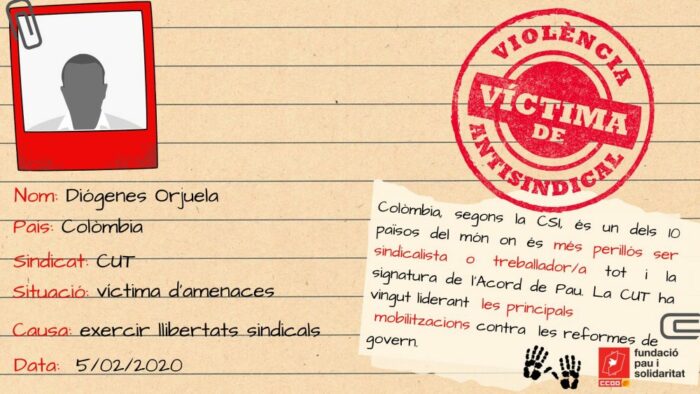 VIOLÈNCIA
VÍCTIMA
DE
ANTISINDICAL
Nom: Diógenes Orjuela
País: Colòmbia
Sindicat: CUT
Situació: víctima d'amenaces
Causa: exercir llibertats sindicals
Data: 5/02/2020
Colòmbia, segons la CSI, és un dels 10
països del món on és més perillós ser
sindicalista o treballador/a tot i la
signatura de l'Acord de Pau. La CUT ha
vingut liderant les principals
mobilitzacions contra les reformes de
govern.
CCOO
fundació
pau i
solidaritat